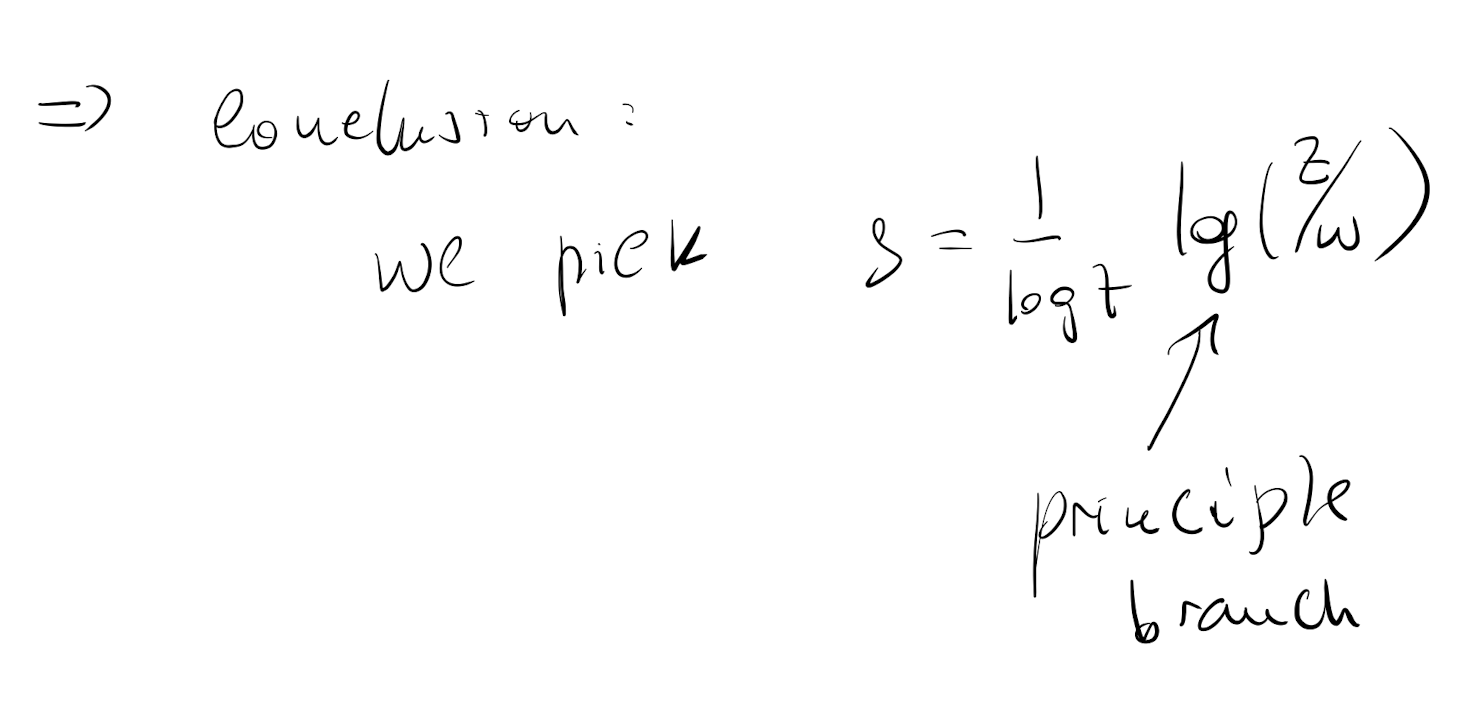 => Conclusion:
we pick s = 1/log t log(z/w)
principle
branch